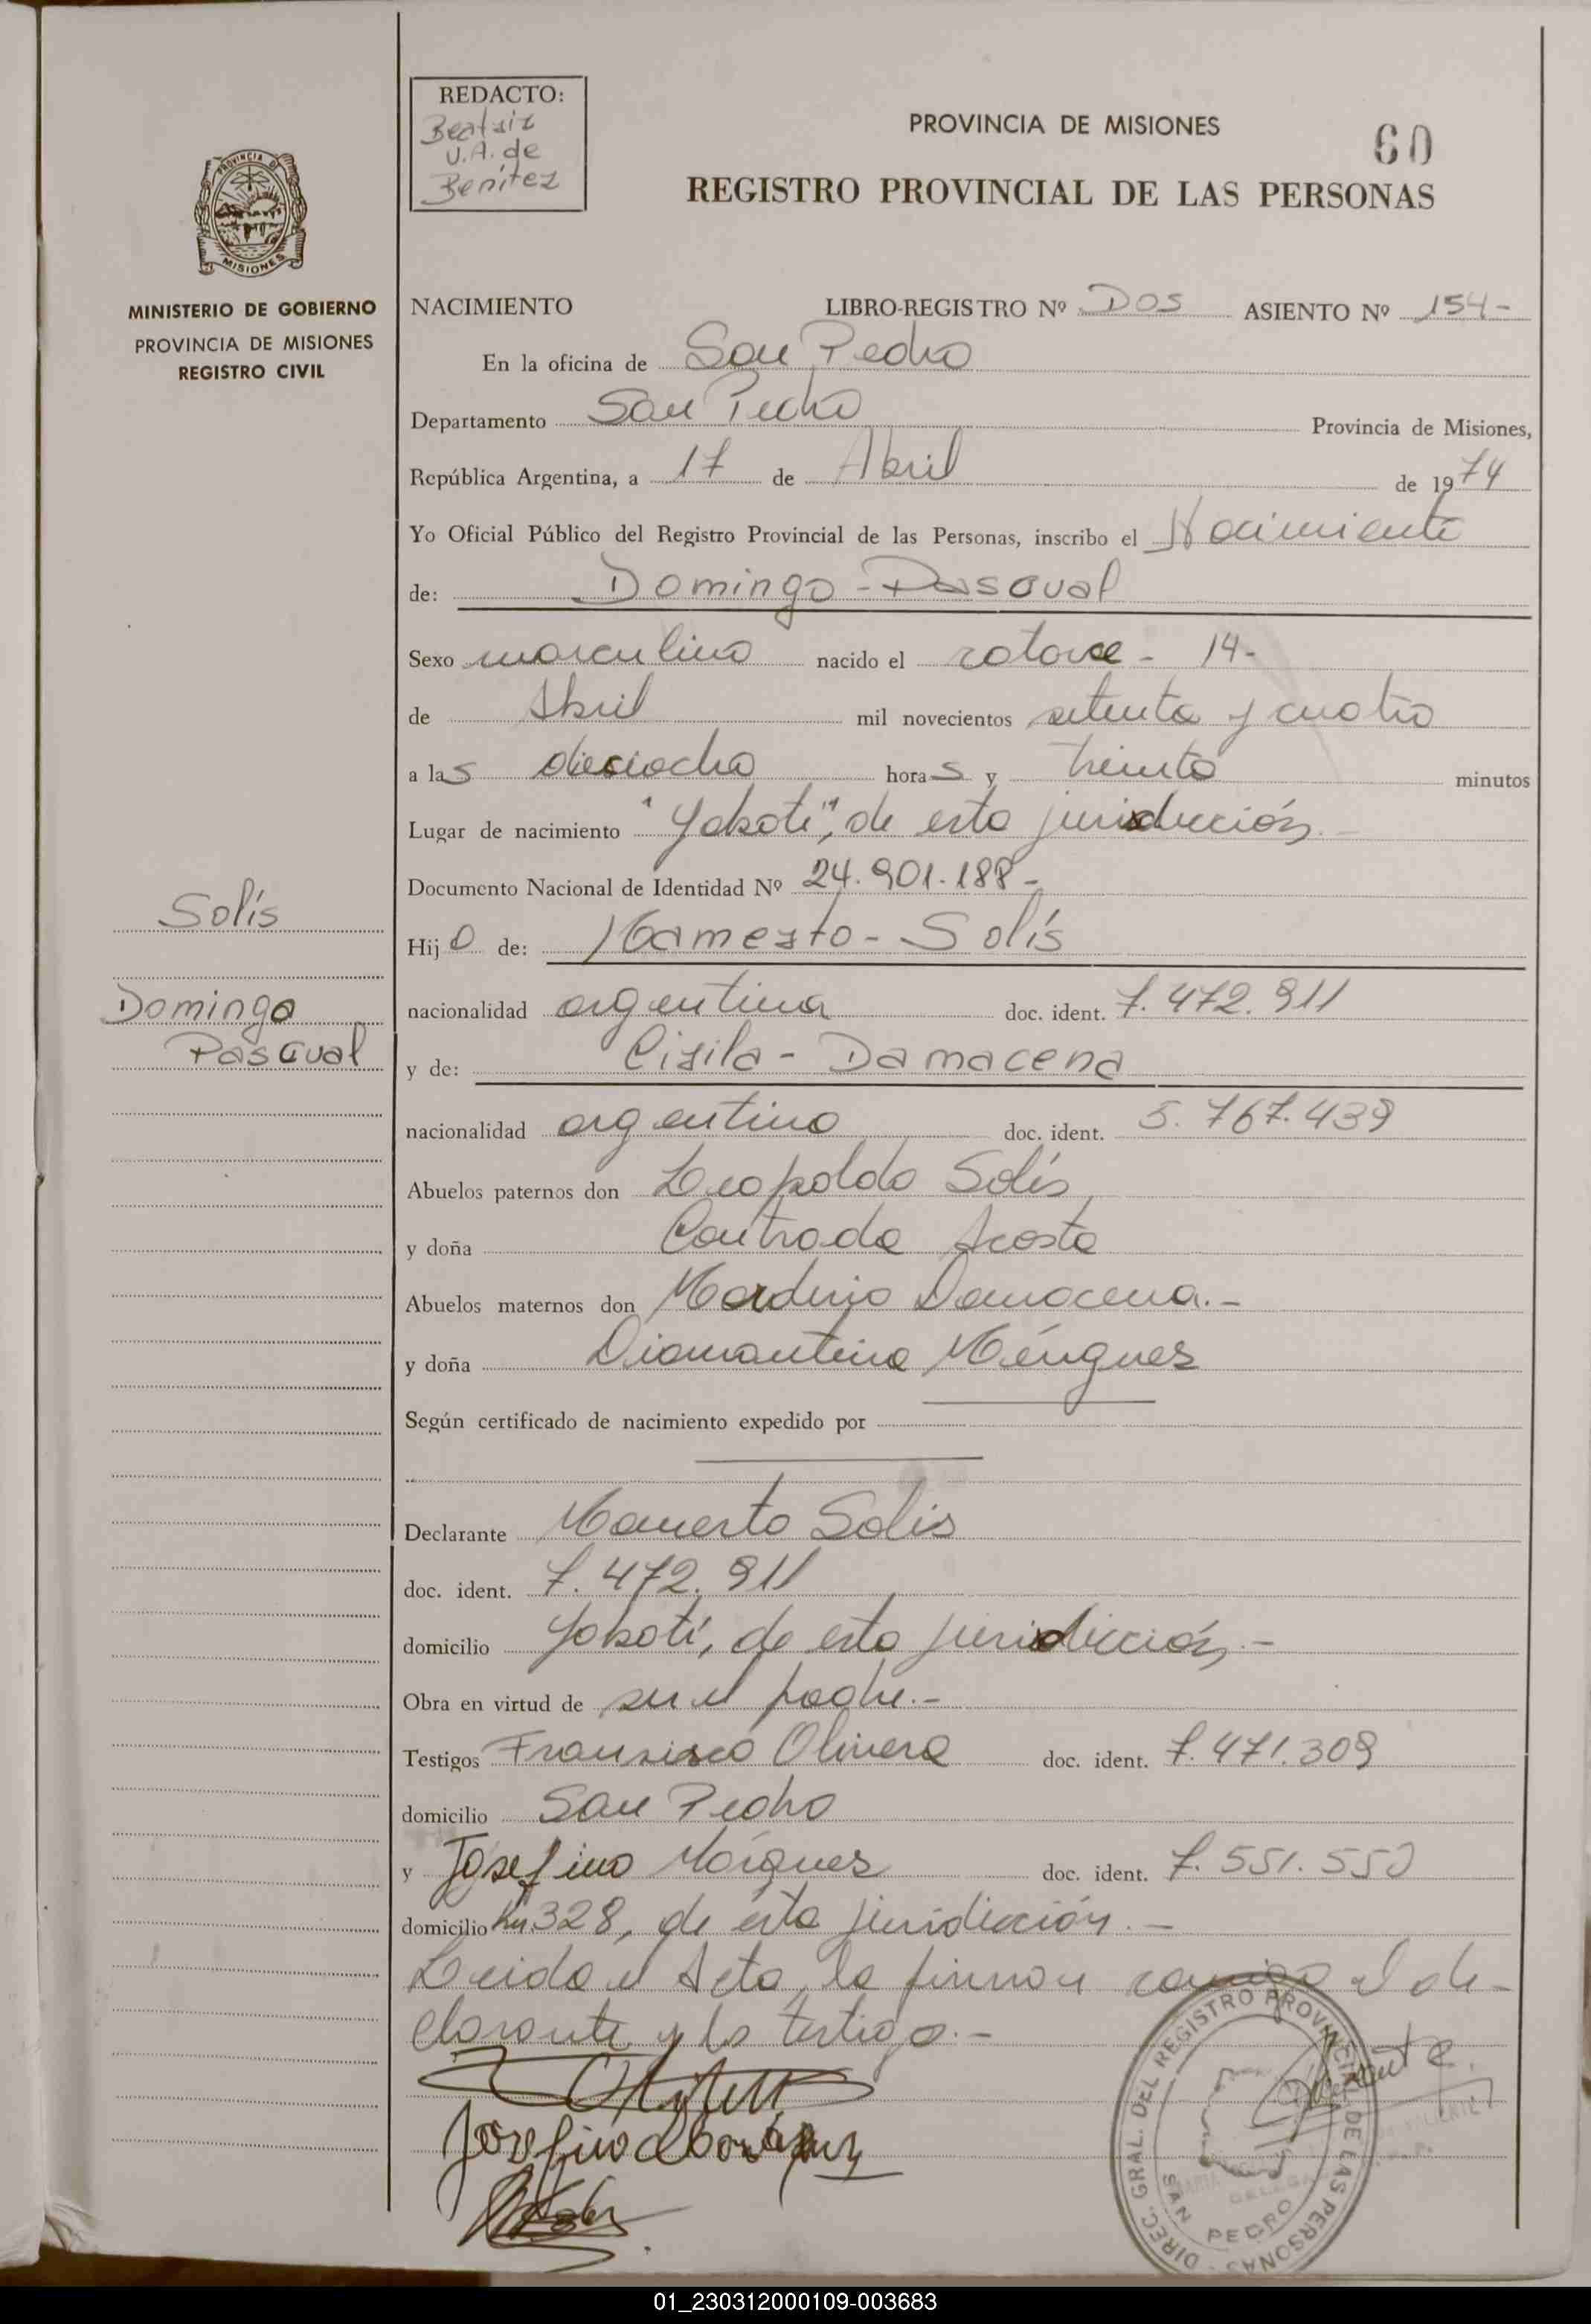 REDACTO:
Beatriz
U.A. de
Benítez
PROVINCIA DE MISIONES
60
REGISTRO PROVINCIAL DE LAS PERSONAS
PROVINCIA DE
MISIONES
MINISTERIO DE GOBIERNO
PROVINCIA DE MISIONES
REGISTRO CIVIL
NACIMIENTO LIBRO-REGISTRO Nº Dos ASIENTO Nº 154-
En la oficina de San Pedro
Departamento San Pedro Provincia de Misiones,
República Argentina, a 17 de Abril de 1974
Yo Oficial Público del Registro Provincial de las Personas, inscribo el Nacimiento
de: Domingo - Pascual
Sexo masculino nacido el catorce - 14-
de Abril mil novecientos setenta y cuatro
a las dieciocho horas y treinta minutos
Lugar de nacimiento "Yaboti", de esta jurisdicción.-
Documento Nacional de Identidad Nº 24.901.188-
Solís
Hijo de: Mamerto - Solís
Domingo
Pascual
nacionalidad argentina doc. ident. 7.472.911
y de: Cisila - Damacena
nacionalidad argentina doc. ident. 5.767.439
Abuelos paternos don Leopoldo Solís,
y doña Contrada Acosta
Abuelos maternos don Damacena.-
y doña Diamantina Méngues
Según certificado de nacimiento expedido por
Declarante Mamerto Solis
doc. ident. 7.472.911
domicilio Yabotí, de esta jurisdicción.-
Obra en virtud de ser el padre.-
Testigos Francisco Olivera doc. ident. 7.471.309
domicilio San Pedro
y Josefino Márques doc. ident. 7.551.550
domicilio Km 328, de ésta juridicción.-
Leida el Acta, la firman conmigo el de-
clarante y los testigos.-
DIREC. GRAL. DEL REGISTRO PROVINCIAL DE LAS PERSONAS
SAN PEDRO
01_230312000109-003683